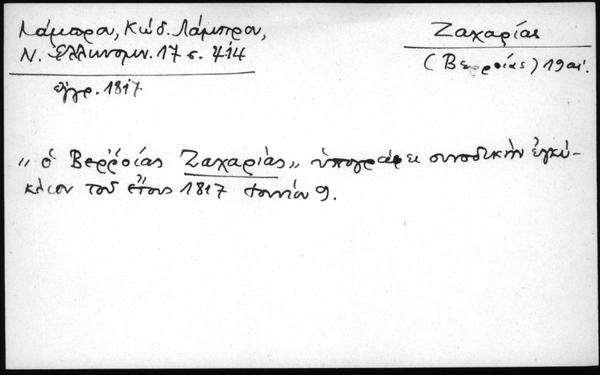 Λάμπρου, Κώδ. Λάμπρου,
Ν. Ἑλληνομν. 17 σ. 414
ἔγγρ. 1817
Ζαχαρίας
(Βερροίας) 19 αἰ.
"ὁ Βεῤῥοίας Ζαχαρίας" ὑπογράφει συνοδικὴν ἐγκύ-
κλιον τοῦ ἔτους 1817 Ἰουνίου 9.